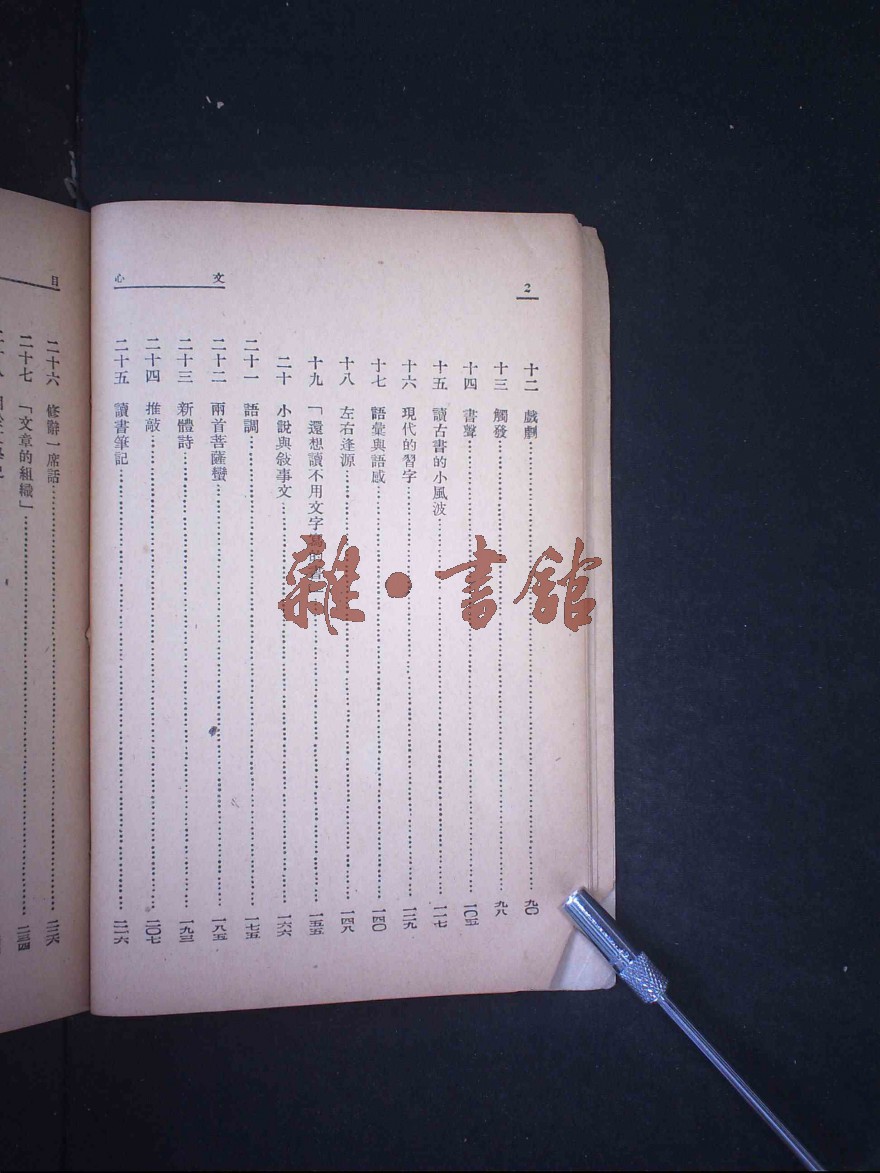 2
文心
十二 戲劇……九〇
十三 觸發……九八
十四 書聲……一〇五
十五 讀古書的小風波……一一七
十六 現代的習字……一二九
十七 語彙與語感……一四〇
十八 左右逢源……一四八
十九 「還想讀不用文字寫的書」……一五五
二十 小說與敍事文……一六六
二十一 語調……一七五
二十二 兩首菩薩蠻……一八五
二十三 新體詩……一九三
二十四 推敲……二〇七
二十五 讀書筆記……二一六
目
二十六 修辭一席話
二十七 「文章的組織」……二三四
雜·書館